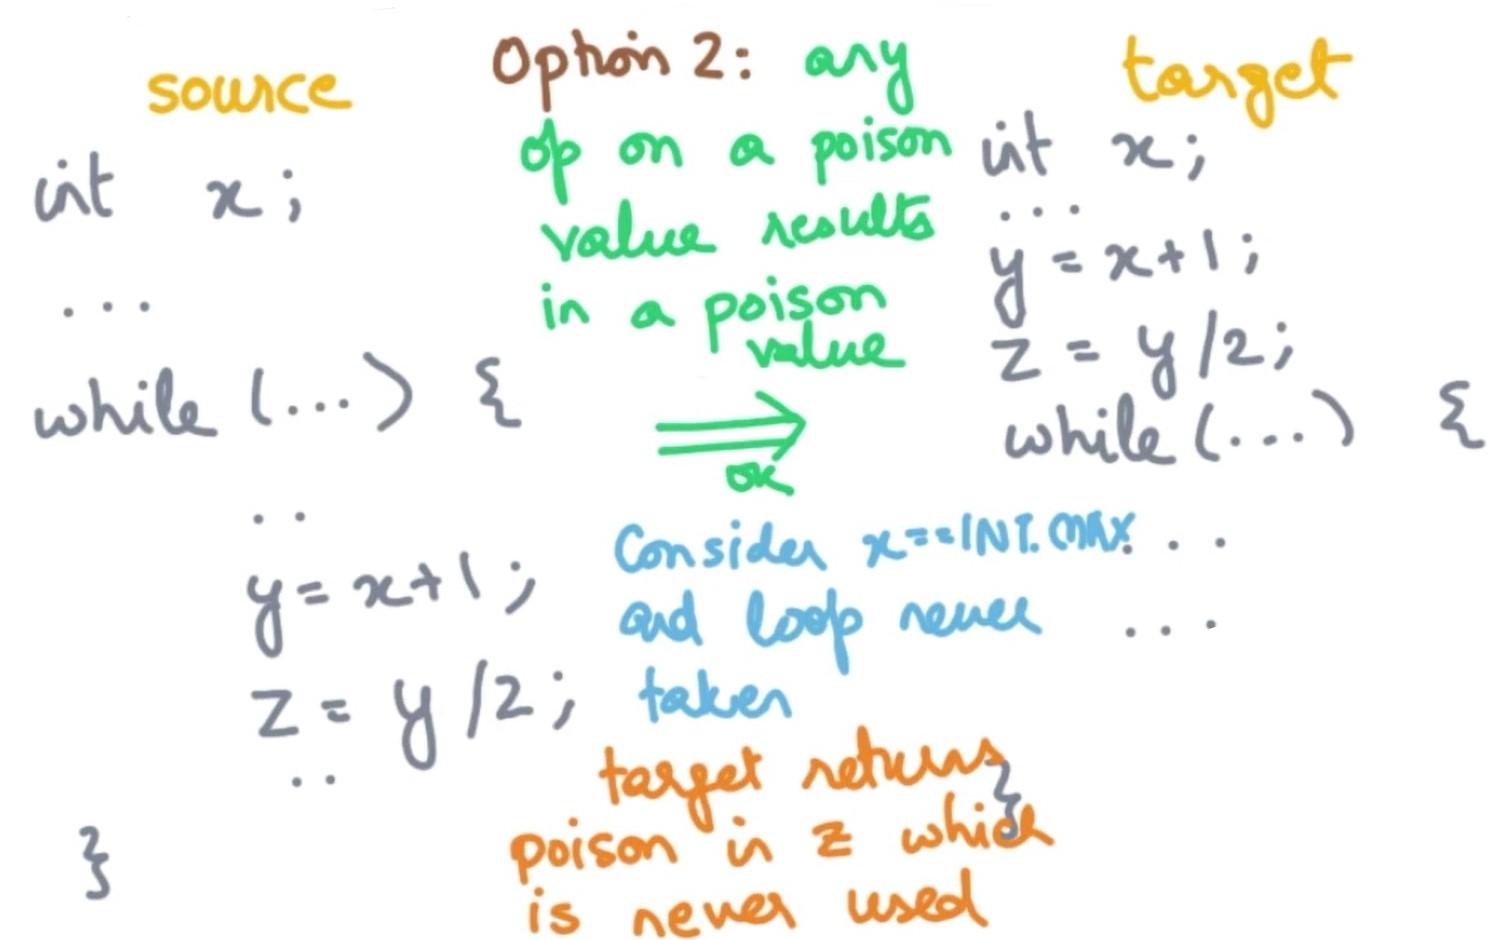 source
int x;
...
while (...) {
..
y = x+1;
z = y/2;
..
}
Option 2: any
op on a poison
value results
in a poison
value
⇒
ok
Consider x==INT.MAX
and loop never
taken
target returns
poison in z which
is never used
target
int x;
...
y = x+1;
z = y/2;
while (...) {
...
...
}